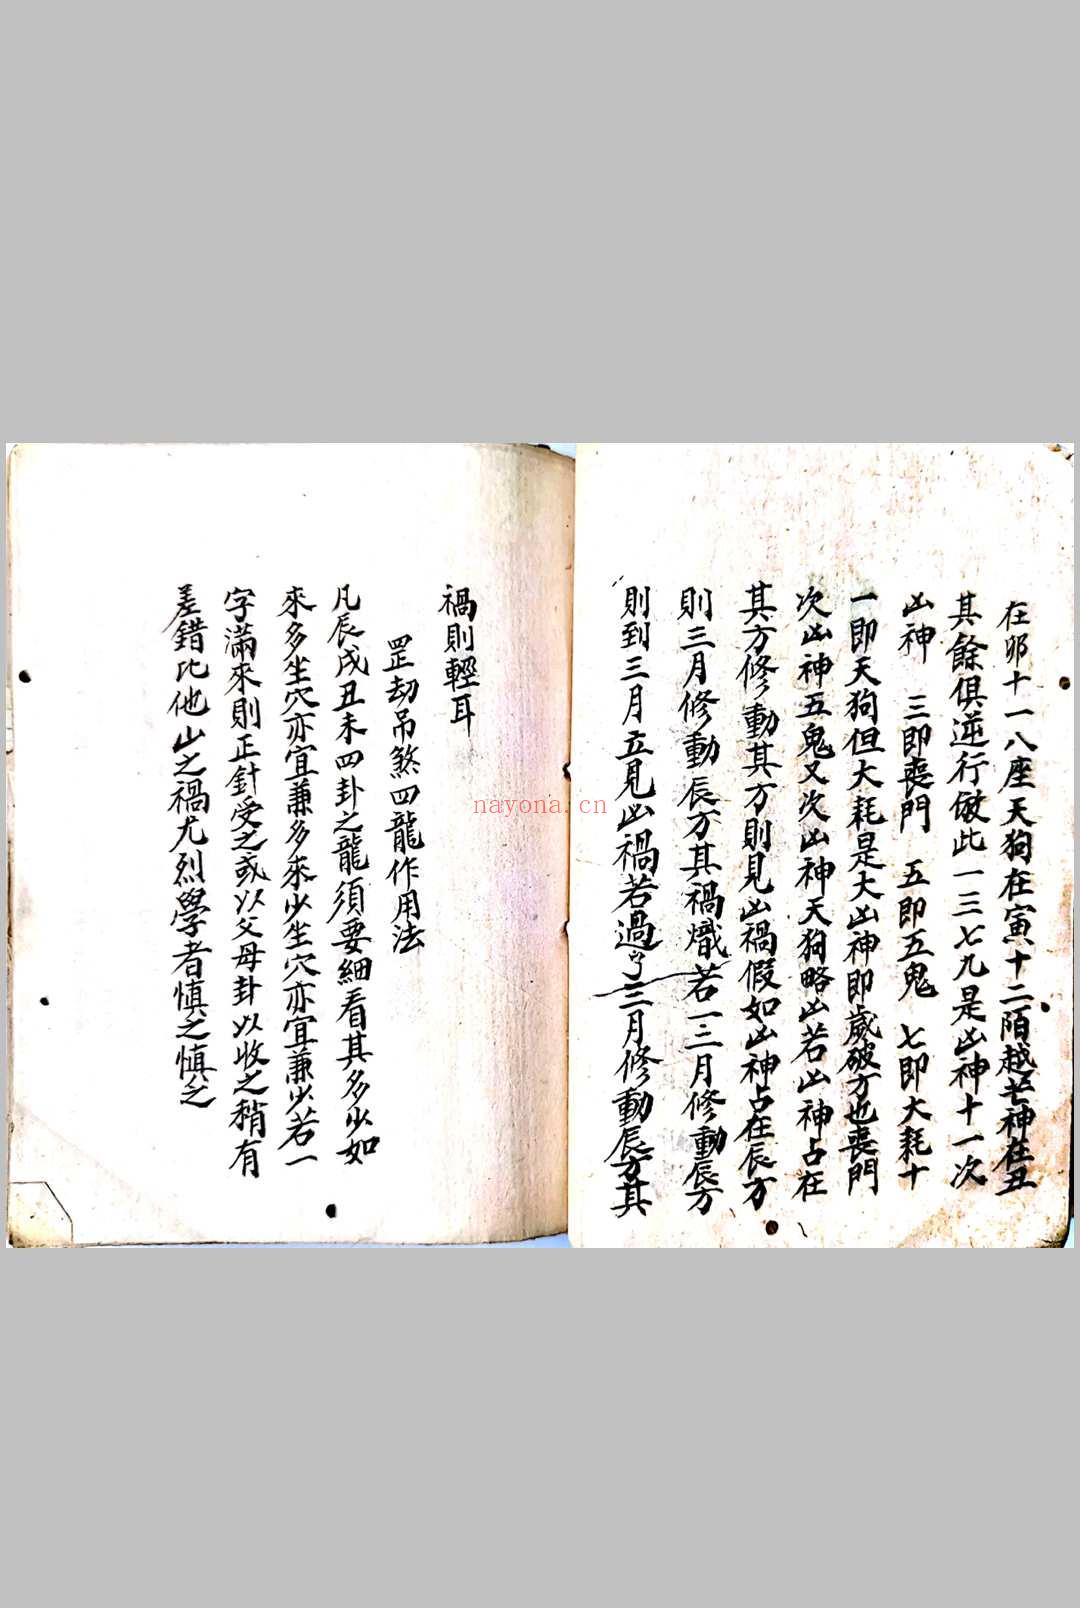 在卯十一八座天狗在寅十二陌越芒神在丑
其餘俱逆行倣此一三七九是凶神十一次
凶神　三即喪門　五即五鬼　七即大耗十
一即天狗但大耗是大凶神即歲破方也喪門
次凶神五鬼又次凶神天狗略凶若凶神占在
其方修動其方則見凶禍假如凶神占在辰方
則三月修動辰方其禍熾若一二月修動辰方
則到三月立見凶禍若過了三月修動辰方其
禍則輕耳
罡劫吊煞四龍作用法
凡辰戌丑未四卦之龍須要細看其多少如
來多坐穴亦宜兼多來少坐穴亦宜兼少若一
字滿來則正針受之或以父母卦以收之稍有
差錯比他山之禍尤烈學者慎之慎之
nayona.cn